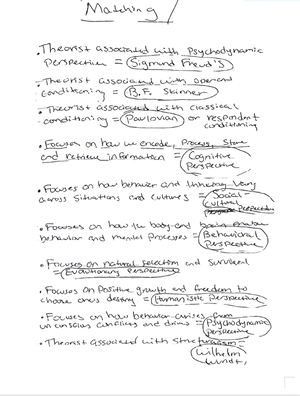 Matching
• Theorist associated with Psychodynamic
Perspective = Sigmund Freud's
• Theorist associated with operant
conditioning = B.F. Skinner
• Theorist associated with classical
conditioning = Pavlovian or respondent
conditioning
• Focuses on how we encode, Process, Store
and retrieve information = Cognitive
Perspective
• Focuses on how behavior and thinking Vary
across Situations and Cultures = Social-
cultural
Perspective
• Focuses on how the body and brain
behavior and mental processes = Behavioral
Perspective
• Focuses on natural selection and survival
= Evolutionary Perspective
• Focuses on Positive growth and freedom to
choose ones destiny = Humanistic Perspective
• Focuses on how behavior arises from
unconscious conflicts and drives = Psychodynamic
Perspective
• Theorist associated with Structuralism =
Wilhelm
Wundt,